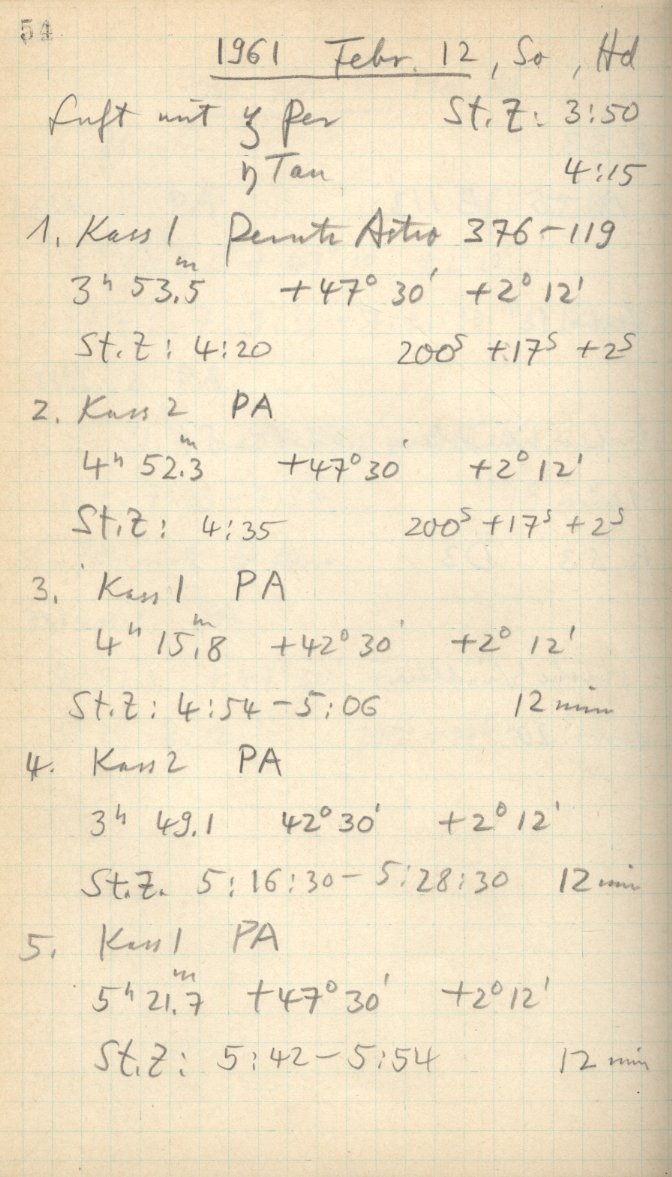 54
1961 Febr. 12, So, Hd
Luft mit ζ Per St.Z: 3:50
η Tau 4:15
1. Kass 1 Perutz Astro 376-119
3ʰ 53.5ᵐ +47° 30' +2° 12'
St.Z: 4:20 200ˢ +17ˢ +2ˢ
2. Kass 2 PA
4ʰ 52.3ᵐ +47° 30' +2° 12'
St.Z: 4:35 200ˢ +17ˢ +2ˢ
3. Kass 1 PA
4ʰ 15.8ᵐ +42° 30' +2° 12'
St.Z: 4:54 - 5:06 12 min
4. Kass 2 PA
3ʰ 49.1 42° 30' +2° 12'
St.Z. 5:16:30 - 5:28:30 12 min
5. Kass 1 PA
5ʰ 21.7ᵐ +47° 30' +2° 12'
St.Z: 5:42 - 5:54 12 min